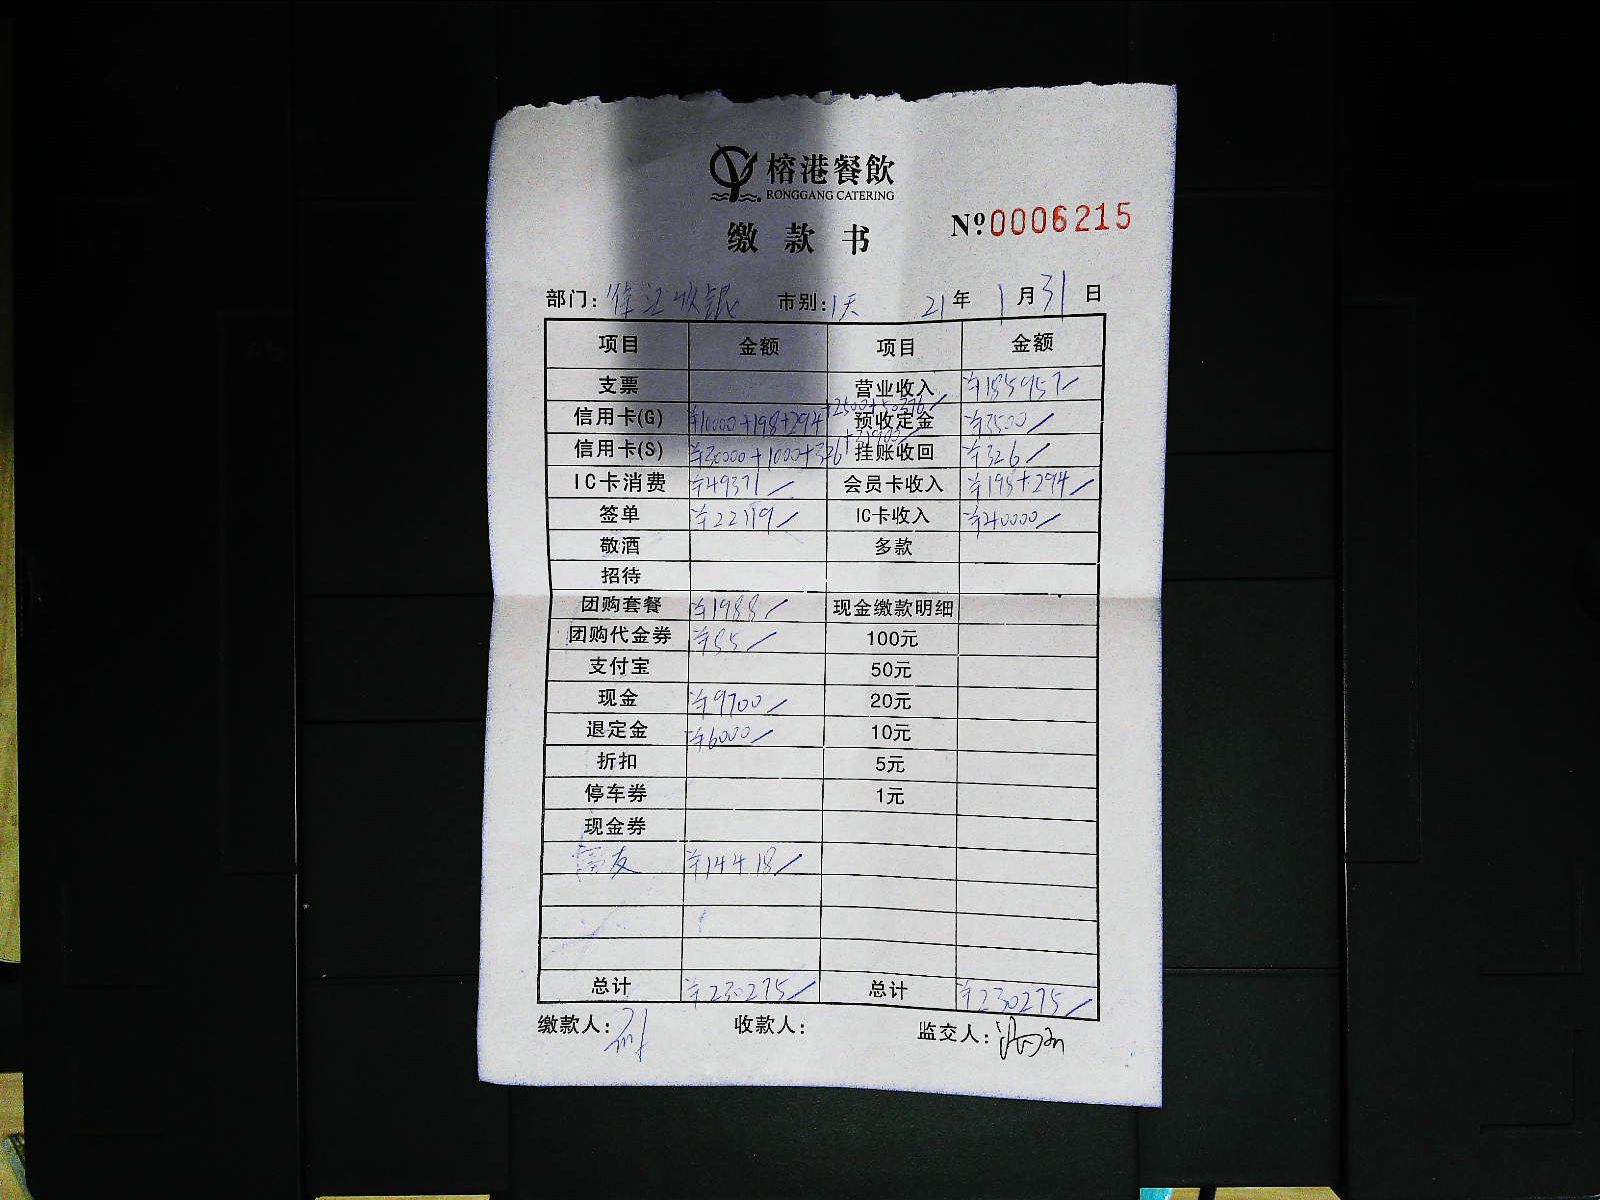 榕港餐飲
RONGGANG CATERING
缴款书
Nº:0006215
部门: 徐汇收银 市别: 1天 21年 1月 31日
项目 金额 项目 金额
支票 营业收入 ¥185957/
信用卡(G) ¥10000+198+294+2500+50376/ 预收定金 ¥3500/
信用卡(S) ¥30000+1000+326+31900/ 挂账收回 ¥326/
IC卡消费 ¥49371/ 会员卡收入 ¥198+294/
签单 ¥22119/ IC卡收入 ¥40000/
敬酒 多款
招待
团购套餐 ¥1988/ 现金缴款明细
团购代金券 ¥85/ 100元
支付宝 50元
现金 ¥9700/ 20元
退定金 ¥6000/ 10元
折扣 5元
停车券 1元
现金券
友 ¥14418/
总计 ¥230275/ 总计 ¥230275/
缴款人: 收款人: 监交人: